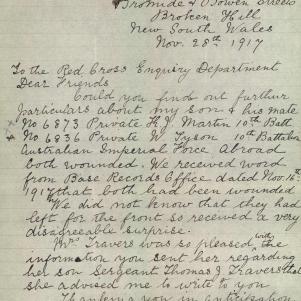 Bromide & O'Bowen Streets
Broken Hill
New South Wales
Nov. 28th 1917
To the Red Cross Enquiry Department
Dear Friends
Could you find out further
particulars about my son & his mate
No 6873 Private H J Martin 10th Batt
No 6936 Private W Tyson 10th Battalion
Australian Imperial Force Abroad
both wounded. We received word
from Base Records Office dated Nov. 16th
1917 that both had been wounded
We did not know that they had
left for the front so received a very
disagreeable surprise.
Mrs Travers was so pleased with
information you sent her regarding
her son Sergeant Thomas J Travers that
she advised me to write to you
Thanking you in anticipation